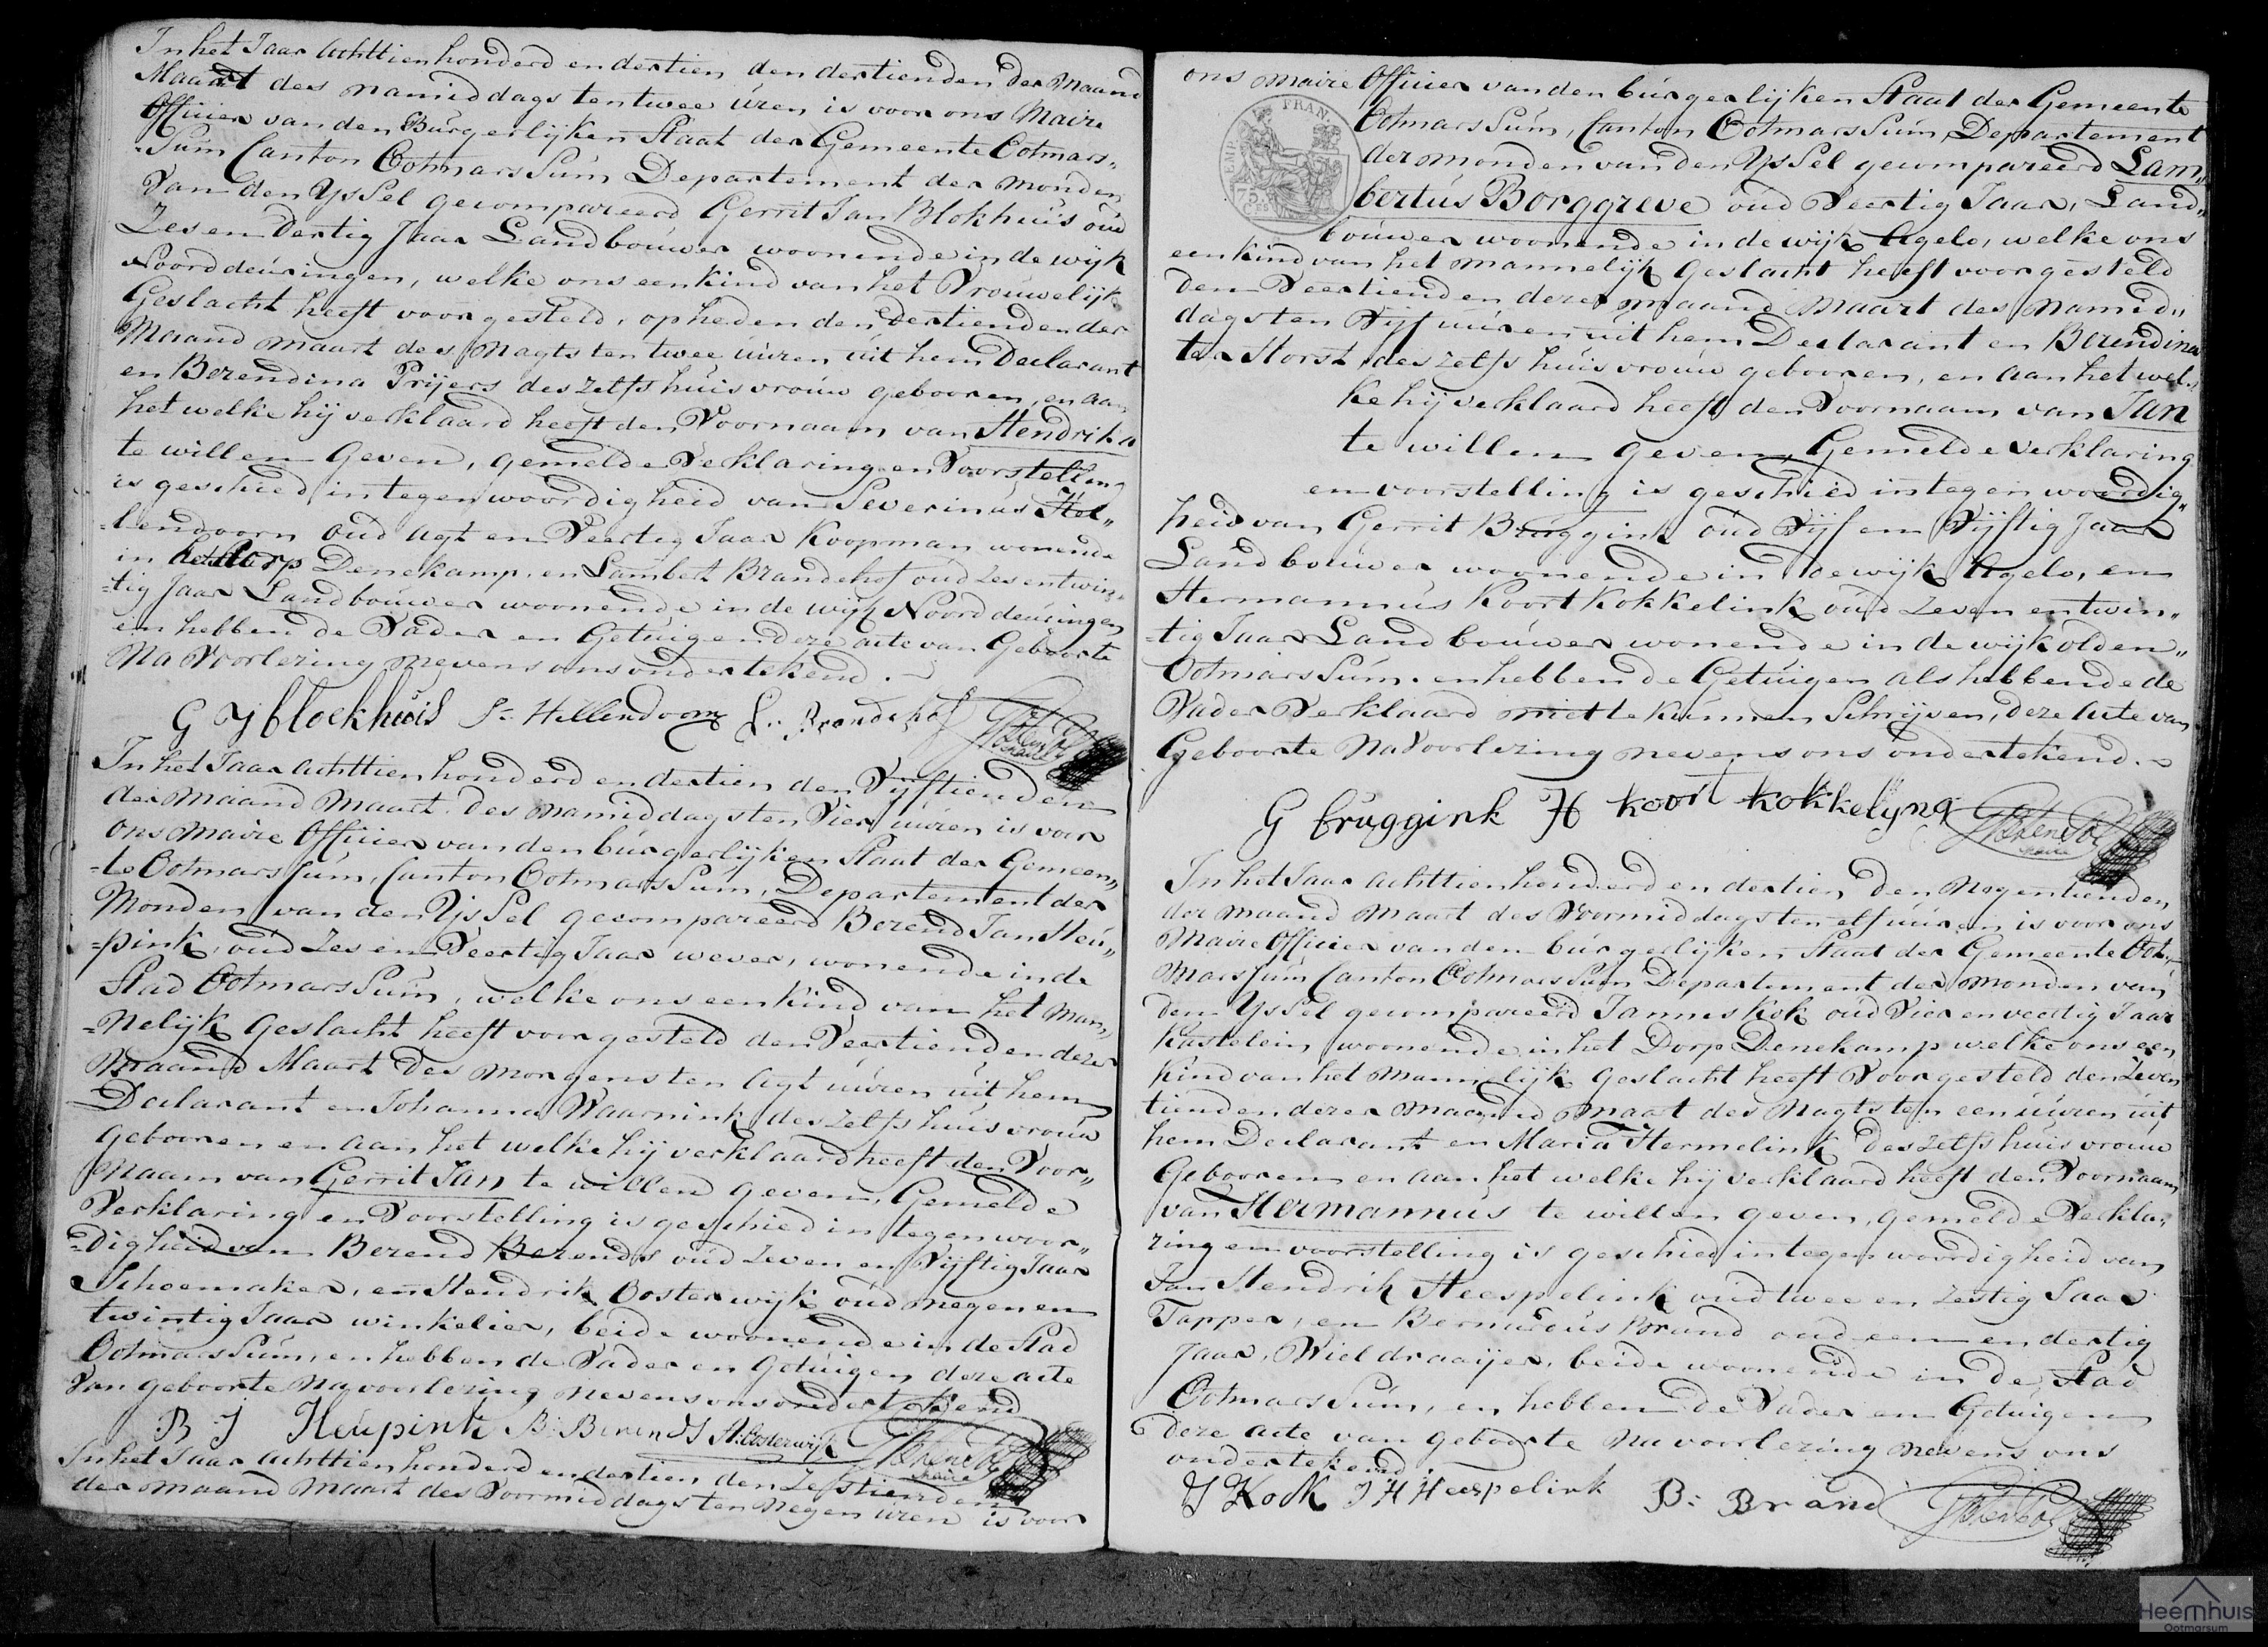 In het Jaar Achttienhonderd en dertien den dertienden der Maand
Maart des namiddags ten twee úren is voor ons Maire
Officier van den Búrgerlijken Staat der Gemeente Ootmars„
-Súm Canton OotmarsSúm Departement der monden
van den YsSel gecompareerd Gerrit Jan Blokhuis oúd
Zes en Dertig Jaar Landboúwer woonende in de wijk
Noorddeúringen, welke ons een kind van het Vroúwelijk
Geslacht heeft voorgesteld, op heden den Dertienden der
Maand maart des Nagts ten twee úúren úit hem Declarant
en Berendina Prijers deszelfs húisvroúw gebooren, en aan
het welke hij verklaard heeft den Voornaam van Hendrika
te willen Geven, gemelde Verklaring en Voorstelling
is geschied in tegenwoordigheid van Severinús Hel„
-lendoorn oúd agt en Veertig Jaar Koopman wonende
in het dorp Denekamp, en Lambert Brandehof oúd zes en twin„
-tig Jaar Landboúwer woonende in de wijk Noorddeúringen
en hebben de Vader en Getúigen deze acte van Geboorte
Na Voorlezing nevens ons ondertekend.
G J blockhúis S: Hellendoorn L: Brandehof
Maire
In het Jaar achttienhonderd en dertien den Vijftienden
der maand Maart des namiddags ten Vier úúren is voor
ons maire Officier van den búrgerlijken Staat der Gemeen„
-te OotmarsSúm, Canton OotmarsSúm, Departement der
Monden van den YsSel gecompareerd Berend Jan Heú„
-pink, oúd Zes en Veertig Jaar wever, wonende in de
Stad OotmarsSúm, welke ons een kind van het Man„
-nelijk Geslacht heeft voorgesteld den Veertienden dezer
Maand Maart des morgens ten Agt úúren úit hem
Declarant en Johanna Waarnink deszelfs húisvroúw
Gebooren en aan het welke hij verklaard heeft den Voor„
Naam van Gerrit Jan te willen geven, Gemelde
Verklaring en Voorstelling is geschied in tegenwoor„
-digheid van Berend Berends oúd zeven en Vijftig Jaar
Schoemaker, en Hendrik Oosterwijk oúd negen en
twintig Jaar winkelier, beide woonende in de Stad
OotmarsSúm, en hebben de Vader en Getúigen deze acte
van geboorte na voorlezing nevens ons ondertekend
B J Heúpink B: Berends H: Oosterwijk
Maire
In het Jaar achttienhonderd en dertien den Zestienden
der maand maart des Voormiddags ten Negen úren is voor
ons maire Officier van den búrgerlijken Staat der Gemeente
OotmarsSúm, Canton OotmarsSúm, Departement
der monden van den YsSel gecompareerd Lam„
bertús Borggreve oúd Veertig Jaar, Land„
boúwer woonende in de wijk Agelo, welke ons
een kind van het mannelijk Geslacht heeft voorgesteld
den Veertienden dezer maand Maart des Namid„
dags ten Vijf úúren úit hem Declarant en Berendina
ter Horst deszelfs húisvroúw gebooren, en aan het wel„
ke hij verklaard heeft den Voornaam van Jan
te willen geven, Gemelde verklaring
en voorstelling is geschied in tegenwoordig„
heid van Gerrit Brúggink oúd Vijf en Vijftig Jaar
Landboúwer woonende in de wijk Agelo, en
Hermannús Koort Kokkelink oúd zeven en twin„
-tig Jaar Landboúwer wonende in de wijk olden„
OotmarsSúm. en hebben de Getúigen als hebbende de
Vader Verklaard niet te kúnnen Schrijven, deze Acte van
Geboorte Na Voorlezing nevens ons ondertekend.
G brúggink H koort kokkelyng
Maire
In het Jaar achttienhonderd en dertien den Negentienden
der maand maart des Voormiddags ten elf úúren is voor ons
Maire Officier van den búrgerlijken Staat der Gemeente Oot„
MarsSúm Canton OotmarsSúm Departement der monden van
den YsSel gecompareerd Jannes Kok oúd Vier en veertig Jaar
Kastelein woonende in het Dorp Denekamp welke ons een
Kind van het Mannelijk Geslacht heeft Voorgesteld den Zeven
tienden dezer maand maart des Nagts ten een úúren úit
hem Declarant en Maria Hermelink deszelfs húisvroúw
Gebooren en aan het welke hij verklaard heeft den Voornaam
van Hermannús te willen geven, gemelde Verkla„
ring en voorstelling is geschied in tegenwoordigheid van
Jan Hendrik Heespelink oúd twee en zestig Jaar
Tapper, en Bernardús Brand oúd een en dertig
Jaar, Wieldraaijer, beide woonende in de Stad
OotmarsSúm, en hebben de Vader en Getúigen
deze acte van geboorte na voorlezing nevens ons
ondertekend.
J Kok J H Heespelink B: Brand
EMP. FRAN.
75.
Heemhuis
Ootmarsum